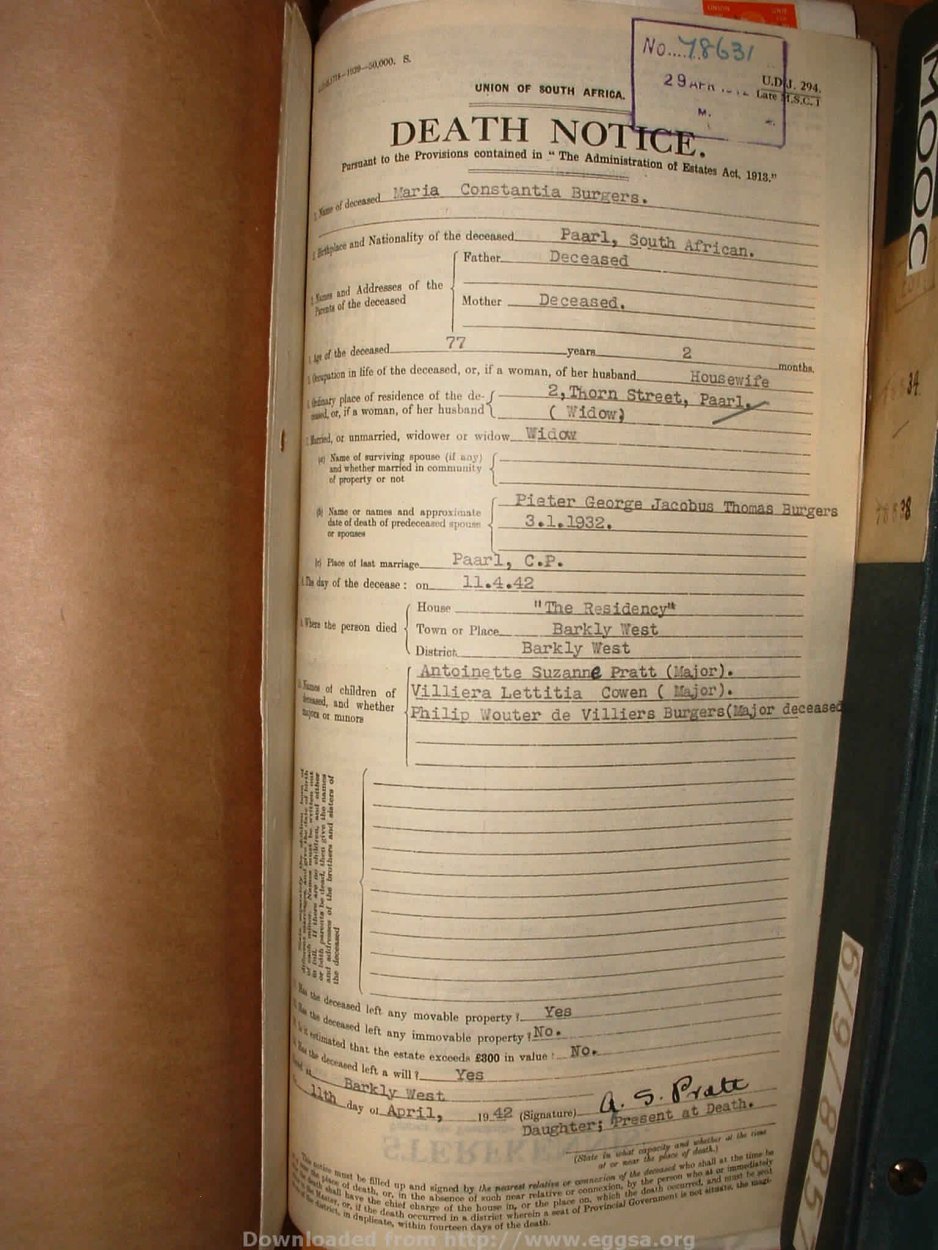 1939—50,000. S.
No....78631
29 APR
M.
UNION OF SOUTH AFRICA.
U.D.J. 294.
Late M.S.C. 1
DEATH NOTICE.
Pursuant to the Provisions contained in "The Administration of Estates Act, 1913."
1. Name of deceased Maria Constantia Burgers.
2. Birthplace and Nationality of the deceased Paarl, South African.
3. Names and Addresses of the Parents of the deceased
Father Deceased
Mother Deceased.
Age of the deceased 77 years 2 months.
Occupation in life of the deceased, or, if a woman, of her husband Housewife
Ordinary place of residence of the de- 2, Thorn Street, Paarl.
ceased, or, if a woman, of her husband ( Widow)
Married, or unmarried, widower or widow Widow
(a) Name of surviving spouse (if any)
and whether married in community
of property or not
(b) Name or names and approximate Pieter George Jacobus Thomas Burgers
date of death of predeceased spouse 3.1.1932.
or spouses
(c) Place of last marriage Paarl, C.P.
The day of the decease: on 11.4.42
Where the person died
House "The Residency"
Town or Place Barkly West
District Barkly West
Names of children of
deceased, and whether
majors or minors
Antoinette Suzanne Pratt (Major).
Villiera Lettitia Cowen ( Major).
Philip Wouter de Villiers Burgers(Major deceased
State separately the children born of
different marriages, and give the date of birth
of each minor. Names must be written out
in full. If there are no children, and either
or both parents be dead, then give the names
and addresses of the brothers and sisters of
the deceased
Has the deceased left any movable property? Yes
Has the deceased left any immovable property? No.
Is it estimated that the estate exceeds £300 in value? No.
Has the deceased left a will? Yes
Dated at Barkly West
11th day of April, 1942 (Signature) A. S. Pratt
Daughter; Present at Death.
(State in what capacity and whether at the time
of or near the place of death.)
This notice must be filled up and signed by the nearest relative or connexion of the deceased who shall at the time be
near the place of death, or, in the absence of such near relative or connexion, by the person who at or immediately
the death shall have the chief charge of the house in, or the place on, which the death occurred, and must be sent
the Master, or, if the death occurred in a district wherein a seat of Provincial Government is not situate, the magi-
district, in duplicate, within fourteen days of the death.
MOOC
6/9/8857
Downloaded from http://www.eggsa.org